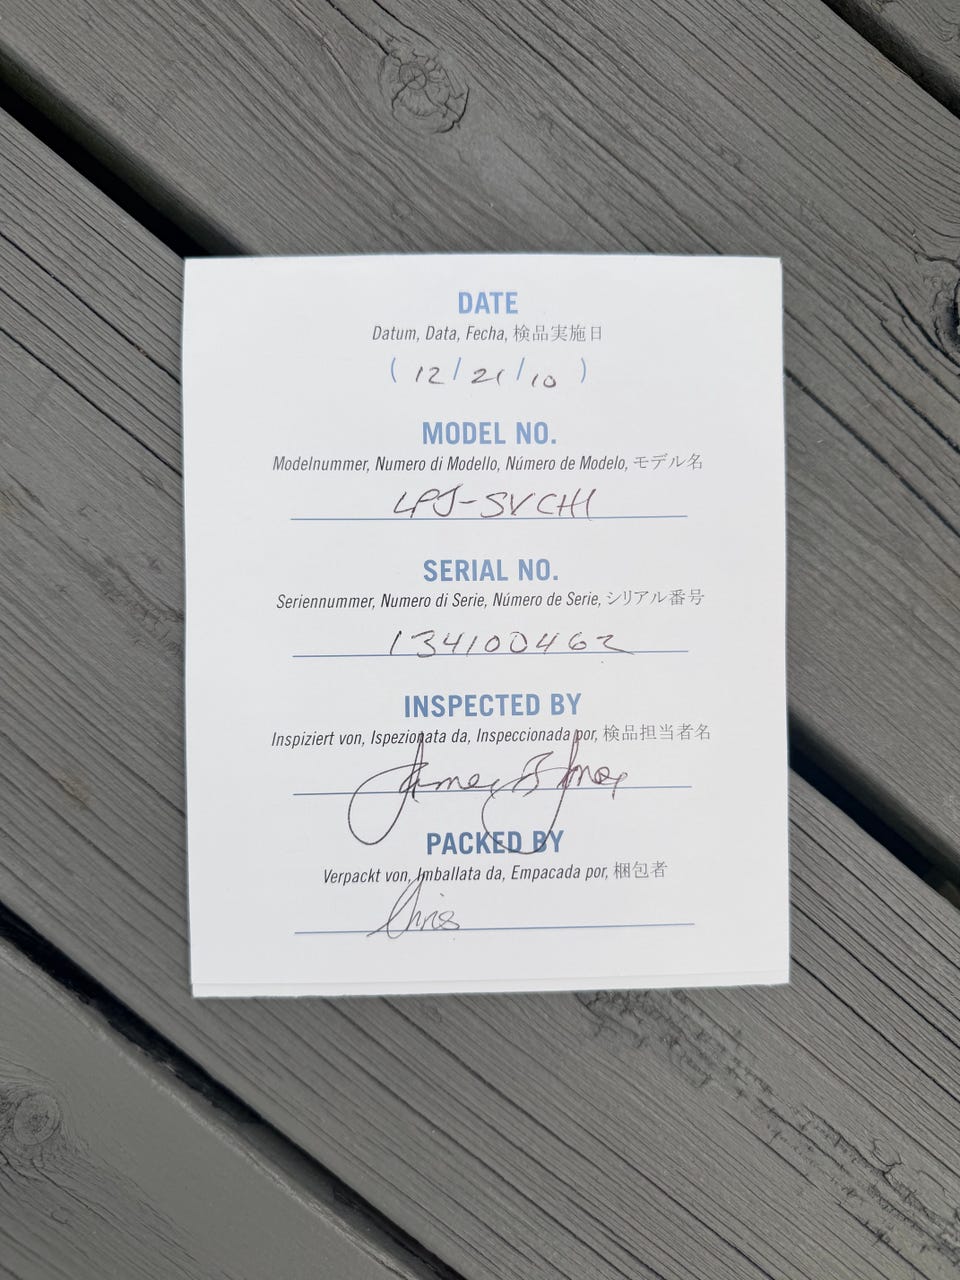 DATE
Datum, Data, Fecha, 検品実施日
( 12 / 21 / 10 )
MODEL NO.
Modelnummer, Numero di Modello, Número de Modelo, モデル名
LPJ-SVCH1
SERIAL NO.
Seriennummer, Numero di Serie, Número de Serie, シリアル番号
134100462
INSPECTED BY
Inspiziert von, Ispezionata da, Inspeccionada por, 検品担当者名
James B Jones
PACKED BY
Verpackt von, Imballata da, Empacada por, 梱包者
Chris